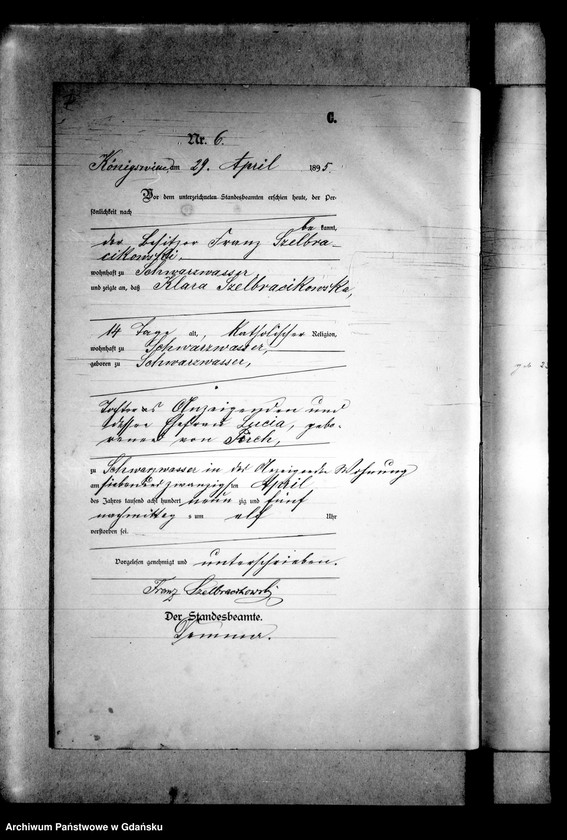 C.
Nr. 6.
Königswiese, am 29. April 1895.
Vor dem unterzeichneten Standesbeamten erschien heute, der Per-
sönlichkeit nach
be kannt,
der Besitzer Franz Szelbra-
cikowski,
wohnhaft zu Schwarzwasser
und zeigte an, daß Klara Szelbracikowska,
14 Tage alt, Katholischer Religion,
wohnhaft zu Schwarzwasser,
geboren zu Schwarzwasser,
Tochter des Anzeigenden und
dessen Ehefrau Lucia, gebo-
renen von
zu Schwarzwasser in des Anzeigenden Wohnung
am siebenundzwanzigsten April
des Jahres tausend acht hundert neun zig und fünf
nachmittag s um elf Uhr
verstorben sei.
Vorgelesen, genehmigt und unterschrieben.
Franz Szelbracikowski
Der Standesbeamte.
Archiwum Państwowe w Gdańsku